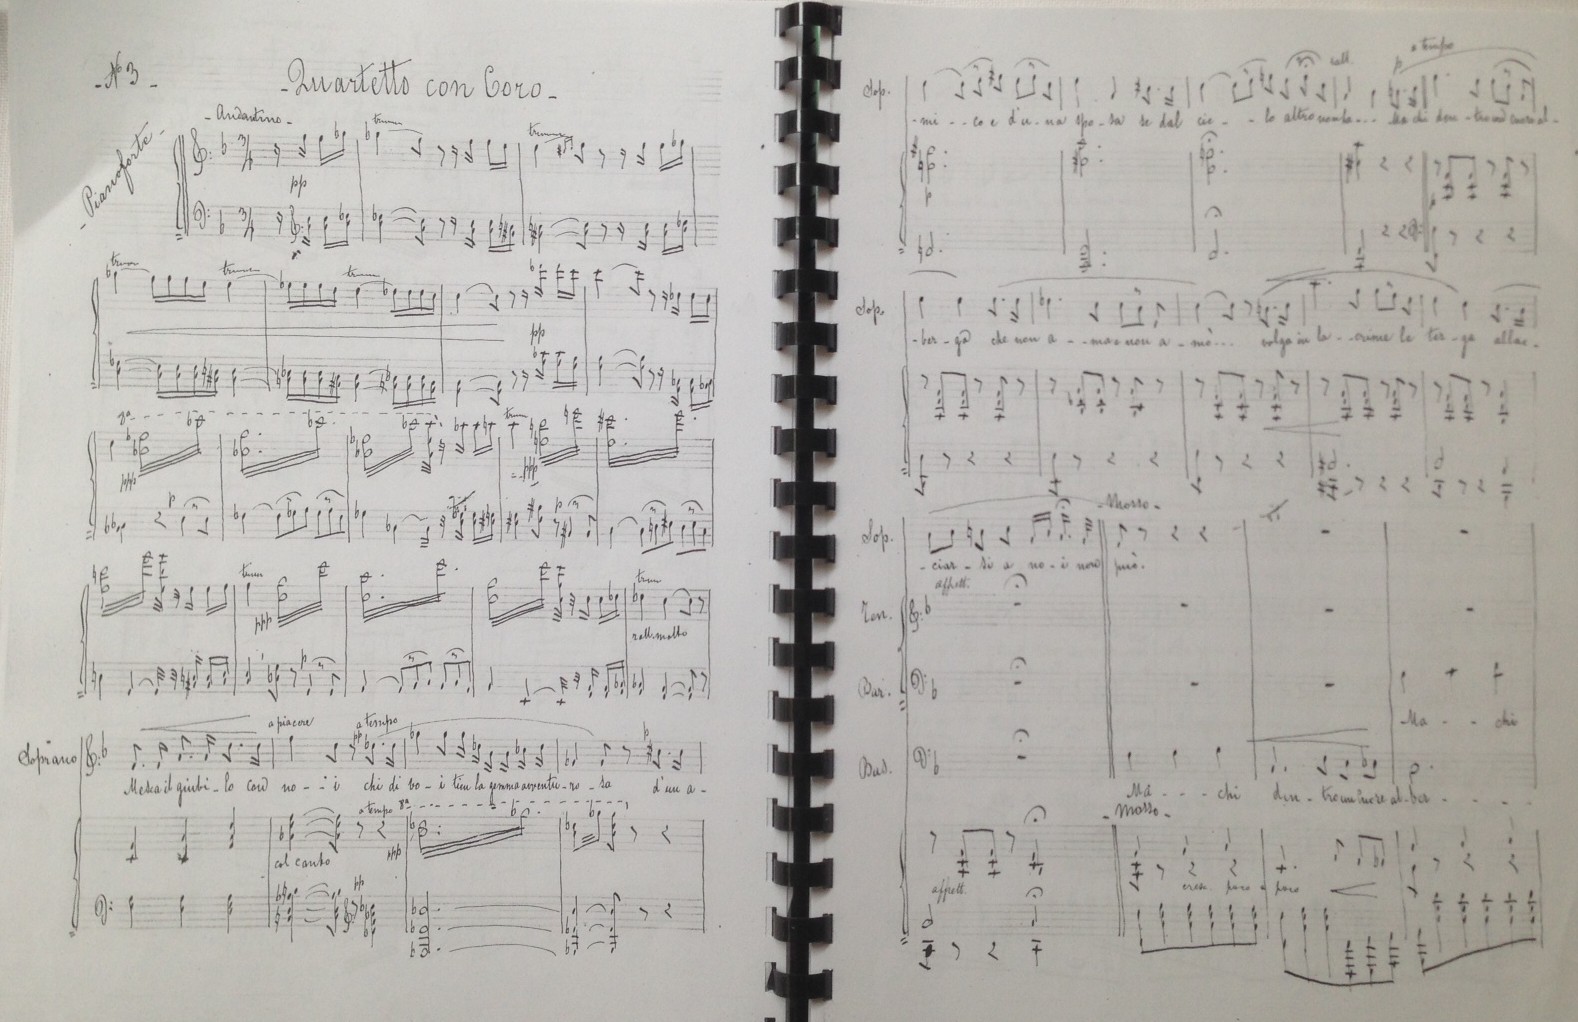 - Nº 3 -
- Quartetto con Coro -
- Andantino -
- Pianoforte -
trum
trum
pp
trum
trum
trum
pp
8ª
trum
ppp
p
ppp
p
trum
trum
ppp
p
rall. molto
a piacere
a tempo
pp
Soprano
Mesca il giubi - lo cord no - - i i chi di vo - i tien la gemma avventu - ro - sa d'un a -
a tempo 8ª
col canto
ppp
pp
rall.
a tempo
p
Sop.
- mi - - co e d'u - na spo - sa se dal cie - - lo altro non ha ... Ma chi den - tro un cuore al -
p
Sop.
- ber - ga che non a - - ma e non a - mò ... volga in la - crime le ter - ga allac -
- Mosso -
Sop.
- ciar - si a no - i non può.
affrett.
Ten.
Bar.
Ma - - chi
Bas.
Ma - - - chi den - tro un cuore al - ber - - - -
- Mosso -
affrett.
cres. poco a poco